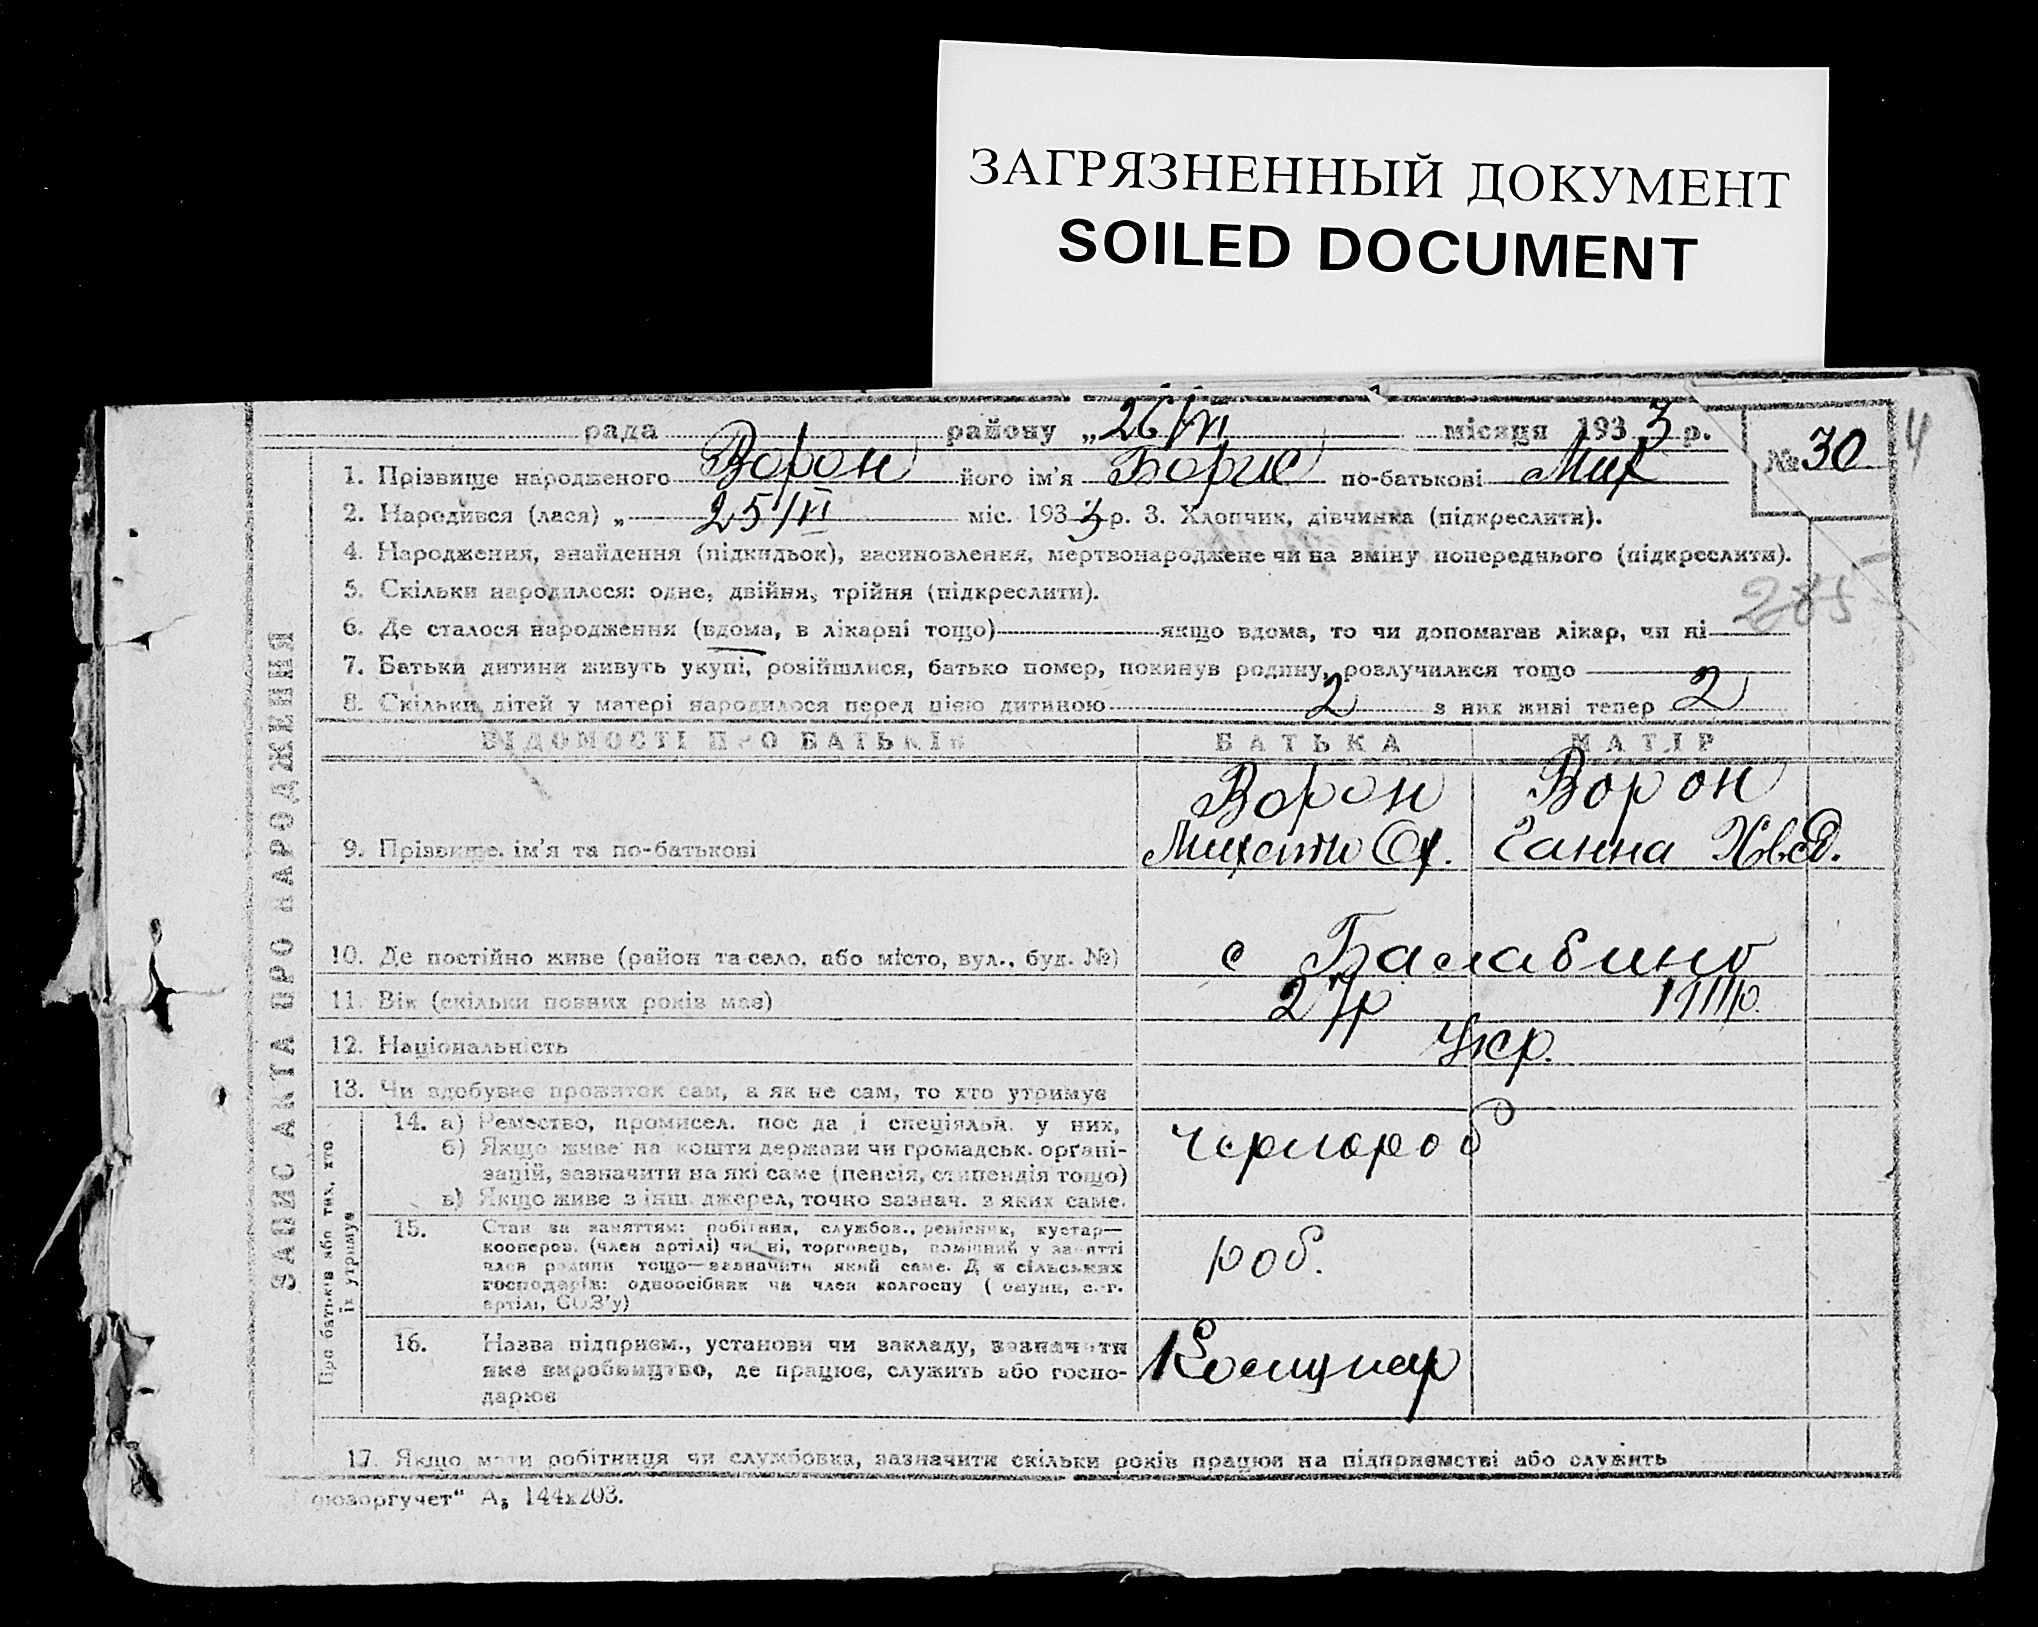 ЗАГРЯЗНЕННЫЙ ДОКУМЕНТ
SOILED DOCUMENT
рада района „26/VI місяця 1933 р.
№ 30
4
1. Прізвище народженого Ворон його ім'я Борис по-батькові Мих
2. Народився (лася) „ 25/VI міс. 1933 р. 3. Хлопчик, дівчинка (підкреслити).
4. Народження, знайдення (підкидьок), засиновлення, мертвонароджене чи на зміну попереднього (підкреслити).
5. Скільки народилося: одне, двійня, трійня (підкреслити).
285
6. Де сталося народження (вдома, в лікарні тощо) якщо вдома, то чи допомагав лікар, чи ні
7. Батьки дитини живуть укупі, розійшлися, батько помер, покинув родину, розлучилися тощо
8. Скільки дітей у матері народилося перед цією дитиною 2 з них живі тепер 2
ЗАПИС АКТА ПРО НАРОДЖЕННЯ
ВІДОМОСТІ ПРО БАТЬКІВ БАТЬКА МАТІР
9. Прізвище, ім'я та по-батькові
Ворон
Ворон
Ганна Хвед.
10. Де постійно живе (район та село, або місто, вул., буд. №) с Балабино
11. Вік (скільки повних років має) 27р
12. Національність Укр.
13. Чи здобуває прожиток сам, а як не сам, то хто утримує
Про батьків або тих, хто їх утримує
14. а) Ремество, промисел, посада і спеціяльн. у них,
б) Якщо живе на кошти держави чи громадськ. органі-
зацій, зазначити на які саме (пенсія, стипендія тощо)
в) Якщо живе з інш. джерел, точко зазнач. з яких саме.
чернороб
15. Стан за заняттям: робітник, службов., ремісник, кустар—
кооперов. (член артілі) чи ні, торговець, помічний у занятті
член родини тощо—зазначити який саме. Для сільських
господарів: одноосібник чи член колгоспу ( комуни, с.-г.
артілі, СОЗ'у)
роб.
16. Назва підприєм., установи чи закладу, зазначити
яке виробництво, де працює, служить або госпо-
дарює
17. Якщо мати робітниця чи службовка, зазначити скільки років працює на підприємстві або служить
оюзоргучет" А5 144х203.